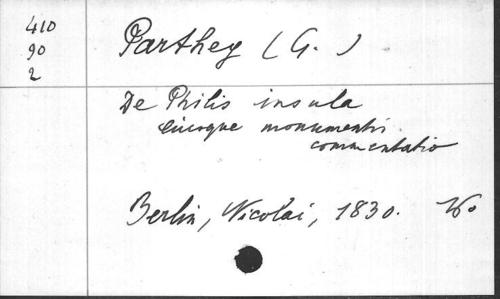 410
90
2
Parthey (G.)
De Philis insula
eiusque monumentis
commentatio
Berlin, Nicolai, 1830.